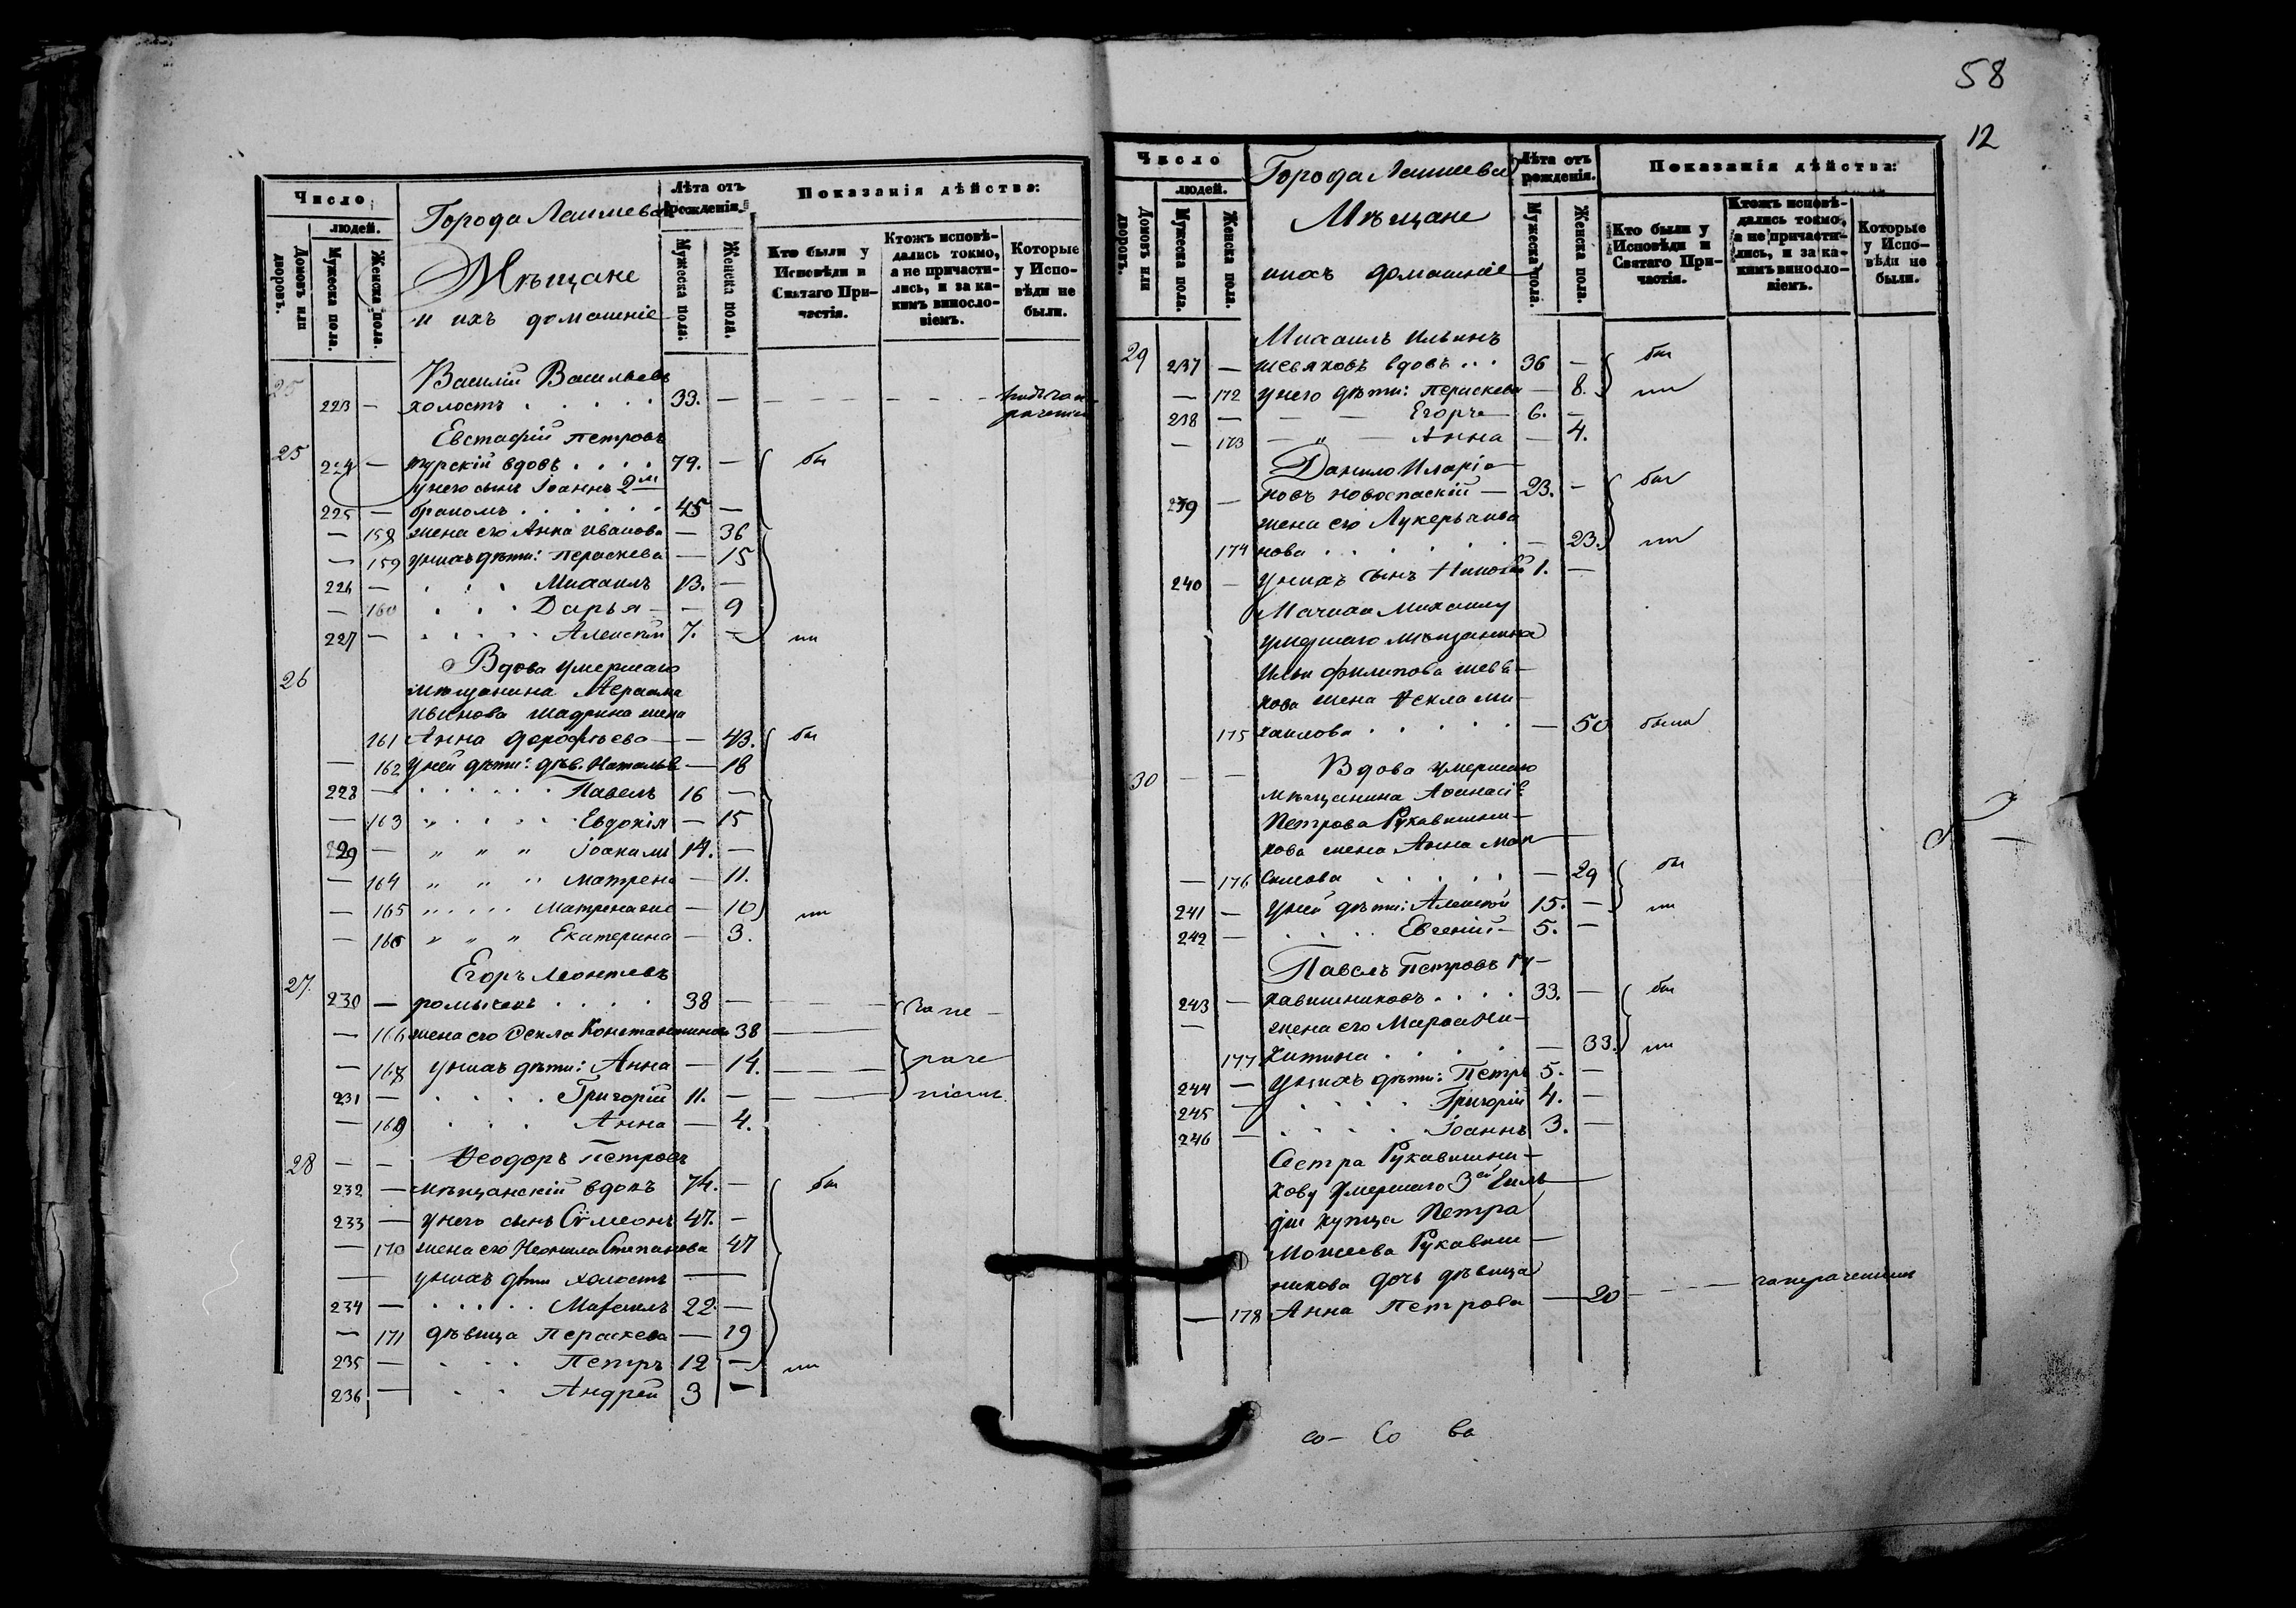 Число
людей.
Домовъ или дворовъ.
Мужеска пола.
Женска пола.
Города Лаишева
Мѣщане
и ихъ домашніе
Лѣта отъ рожденія.
Мужеска пола.
Женска пола.
Показанія дѣйства:
Кто были у Исповѣди и Святаго При-
частія.
Ктожъ исповѣ-
дались токмо,
а не причасти-
лись, и за ка-
кимъ виносло-
віемъ.
Которые
у Испо-
вѣди не
были.
25 Василій Васильевъ
223 — холостъ . . . . . 33. —
Евстафій Петровъ
25 224 — вдовъ . . . . 79. — бы
у него сынъ Іоаннъ 2м
225 — бракомъ . . . . . . 45 —
— 158 жена его Анна Иванова — 36
— 159 у нихъ дѣти: Параскева — 15
226 — Михаилъ 13. —
— 160 Дарья — — 9
227 — Алексѣй 7. — ли
26 Вдова умершаго
мѣщанина
Иванова Шадрина жена
161 Анна Дорофѣева — — 43. бы
— 162 у ней дѣти: дѣв. Наталья — 18
228 — Павелъ 16 —
— 163 Евдокія — 15
229 — " " " Іоакимъ 14. —
— 164 " " " Матрена — 11.
— 165 Матрена — 10 ли
— 166 " " " Екатерина — 3.
27. Егоръ Леонтьевъ
230 — 38 —
— 166 жена его Ѳекла Константинова 38
— 168 у нихъ дѣти: Анна — 14.
231 — Григорій 11. —
— 169 Анна — 4.
28 — — Ѳеодоръ Петровъ
232 — мѣщанскій вдовъ 74. — бы
233 — у него сынъ Сѷмеонъ 47. —
— 170 жена его Неонила Степанова 47
у нихъ дѣти холостъ —
234 — 22 —
— 171 дѣвица Параскева — 19
235 — Петръ 12 — ли
236 — Андрей 3 —
58
12
Число
людей.
Домовъ или дворовъ.
Мужеска пола.
Женска пола.
Города Лаишева
Мѣщане
ихъ домашніе
Лѣта отъ рожденія.
Мужеска пола.
Женска пола.
Показанія дѣйства:
Кто были у
Исповѣди и
Святаго При-
частія.
Ктожъ исповѣ-
дались токмо,
а не причасти-
лись, и за ка-
кимъ виносло-
віемъ.
Которые
у Испо-
вѣди не
были.
29 Михаилъ Ильинъ
237 — Шевяковъ вдовъ . . . 36 — бы
— 172 у него дѣти: Параскева — 8. ли
238 — — — Егоръ — 6. —
— 173 — " — Анна — 4.
Данило Иларіо-
239 — новъ Новоспаскій — 23. — был
жена его Лукерья Ива
174 нова . . . . . . — 23. ли
240 — у нихъ сынъ 1. —
Мачиха Михаилу
умершаго мѣщанина
Ильи Филипова Шевя-
кова жена Ѳекла Ми-
175 хаилова . . . . . — 50 была
30 — — Вдова умершаго
мѣщанина Аѳанасія
Петрова Рукавишни-
кова жена Анна Мак
— 176 симова . . . . . — 29 бы
241 — у ней дѣти: Алексѣй 15. — ли
242 — . . . . Евгеній — 5. —
Павелъ Петровъ Ру-
243 — кавишниковъ . . . . 33. — бы
— жена его Марѳа Ни-
177 китина . . . . — 33. ли
244 — у нихъ дѣти: Петръ 5. —
245 — . . . . Григорій 4. —
246 — . . . . Іоаннъ 3. —
Сестра Рукавишни-
кову умершаго 3ей Гиль-
діи купца Петра
Моисеева Рукавиш-
никова дочь дѣвица
— 178 Анна Петрова — 20
со- Со ва